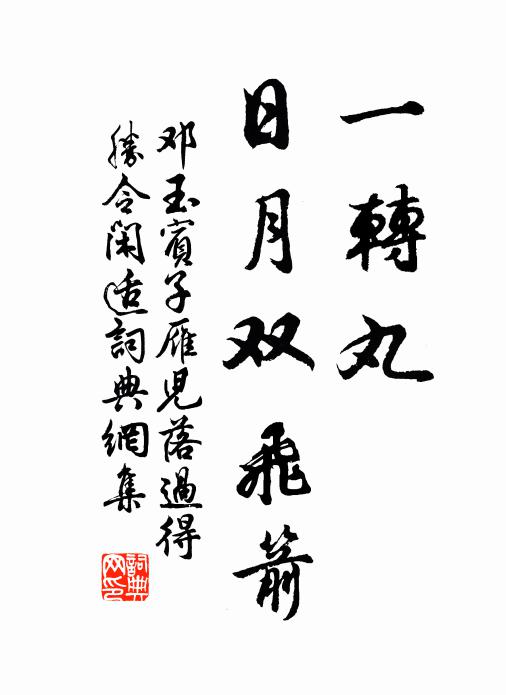 一轉丸
日月双飛箭
邓玉賓子雁児落過得
勝令閑适詞典網集
詞典
网印